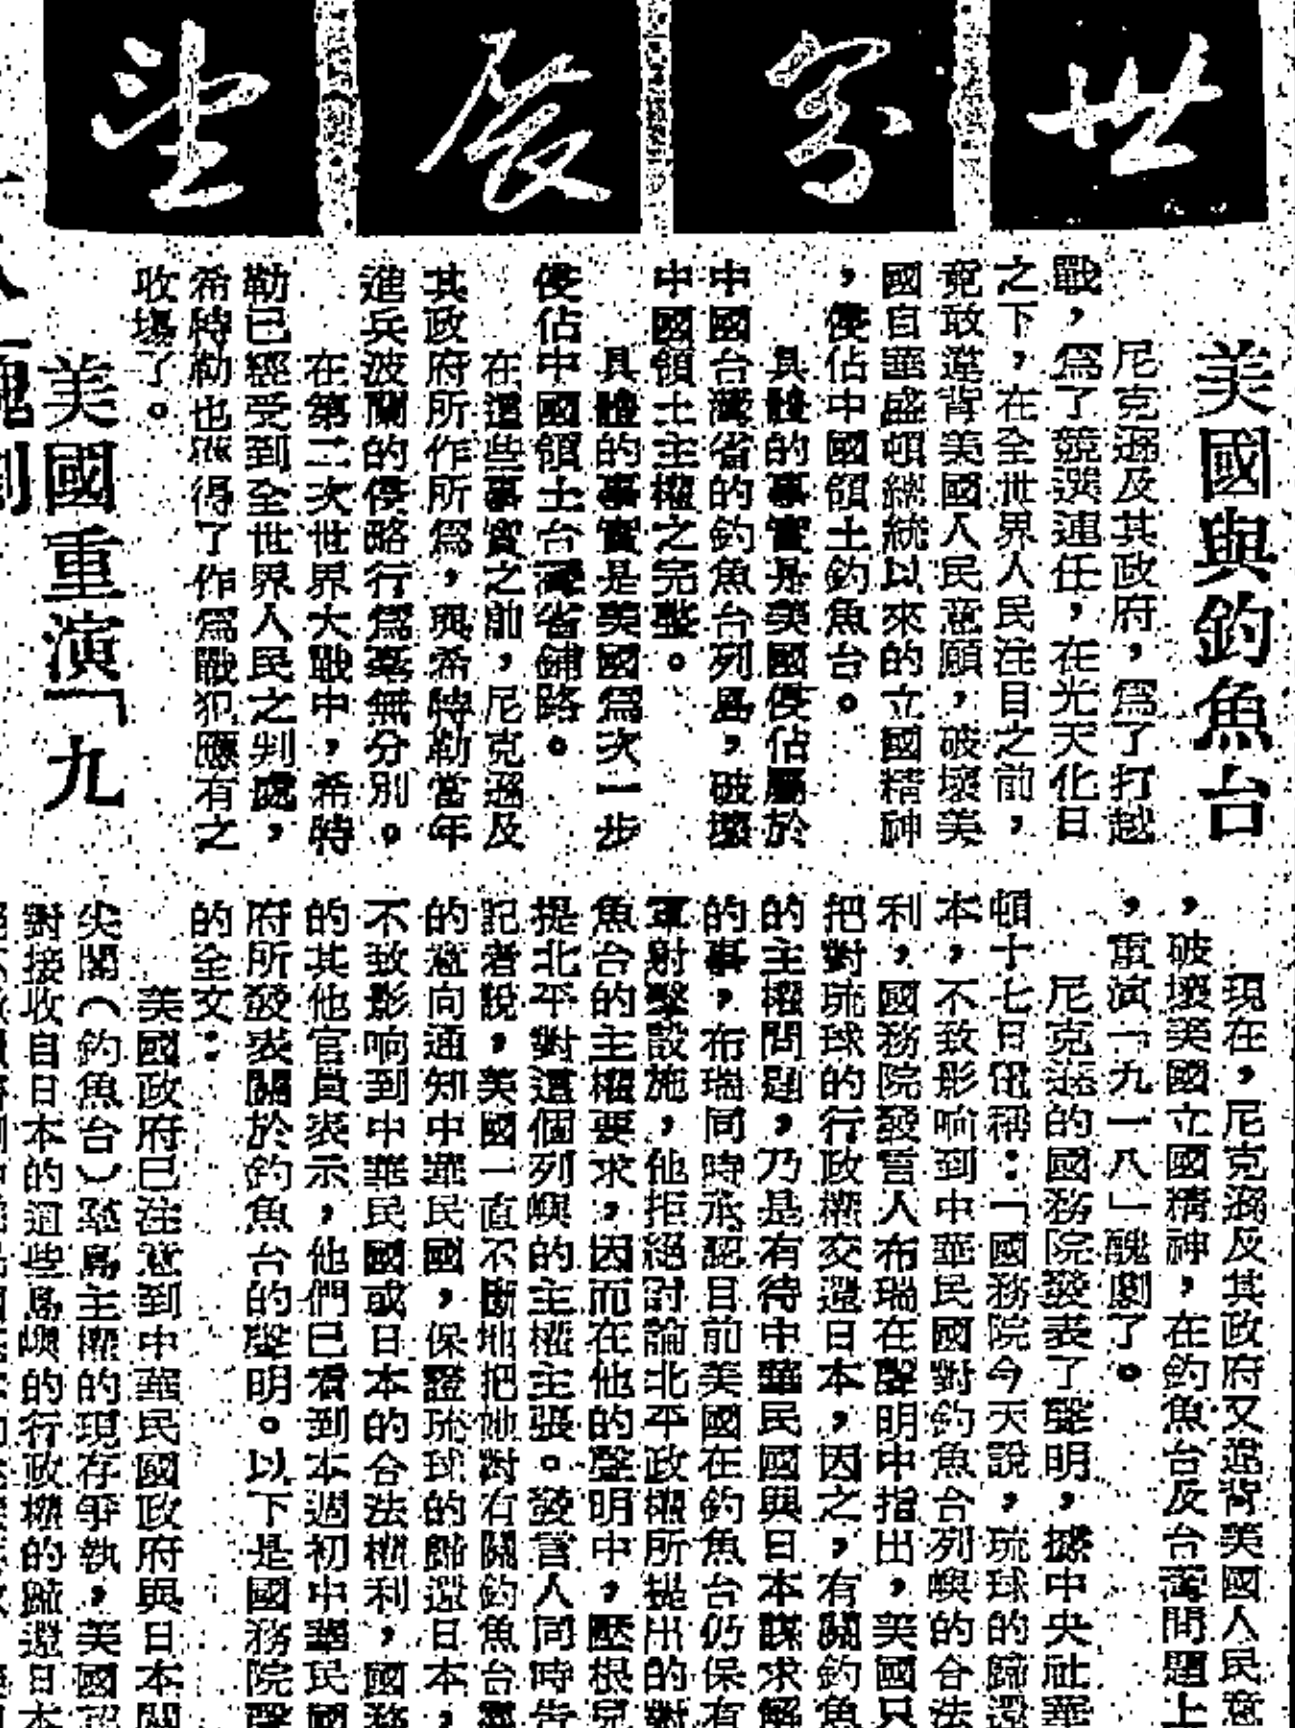 世界展望
美國與釣魚台
尼克遜及其政府，為了打越
戰，為了競選連任，在光天化日
之下，在全世界人民注目之前，
竟敢違背美國人民意願，破壞美
國自華盛頓總統以來的立國精神
，侵佔中國領土釣魚台。
具體的事實是美國侵佔屬於
中國台灣省的釣魚台列島，破壞
中國領土主權之完整。
具體的事實是美國為次一步
侵佔中國領土台灣省鋪路。
在這些事實之前，尼克遜及
其政府所作所為，與希特勒當年
進兵波蘭的侵略行為毫無分別。
在第二次世界大戰中，希特
勒已經受到全世界人民之判處，
希特勒也獲得了作為戰犯應有之
收場了。
美國重演「九
現在，尼克遜及其政府又違背美國人民意
，破壞美國立國精神，在釣魚台及台灣問題上
，重演「九一八」醜劇了。
尼克遜的國務院發表了聲明，據中央社華
頓十七日電稱：「國務院今天說，琉球的歸還
本，不致影响到中華民國對釣魚台列嶼的合法
利，國務院發言人布瑞在聲明中指出，美國只
把對琉球的行政權交還日本，因之，有關釣魚
的主權問題，乃是有待中華民國與日本謀求解
的事，布瑞同時承認目前美國在釣魚台仍保有
軍射擊設施，他拒絕討論北平政權所提出的對
魚台的主權要求，因而在他的聲明中，壓根兒
提北平對這個列嶼的主權主張。發言人同時告
記者說，美國一直不斷地把她對有關釣魚台
的意向通知中華民國，保證琉球的歸還日本，
不致影响到中華民國或日本的合法權利，國務
的其他官員表示，他們已看到本週初中華民國
府所發表關於釣魚台的聲明。以下是國務院聲
的全文：
美國政府已注意到中華民國政府與日本關
尖閣（釣魚台）羣島主權的現存爭執，美國認
對接收自日本的這些島嶼的行政權的歸還日本